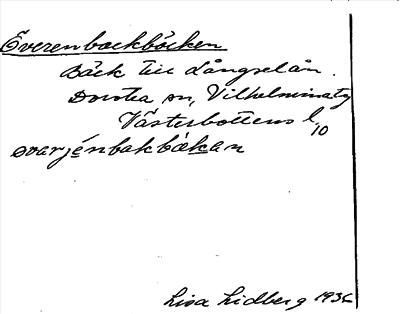 Överenbackbäcken
Bäck till Långselån.
Dorotea sn, Vilhelmina tg
Västerbottens l
10
overjénbakbäkan
Lisa Lidberg 1936